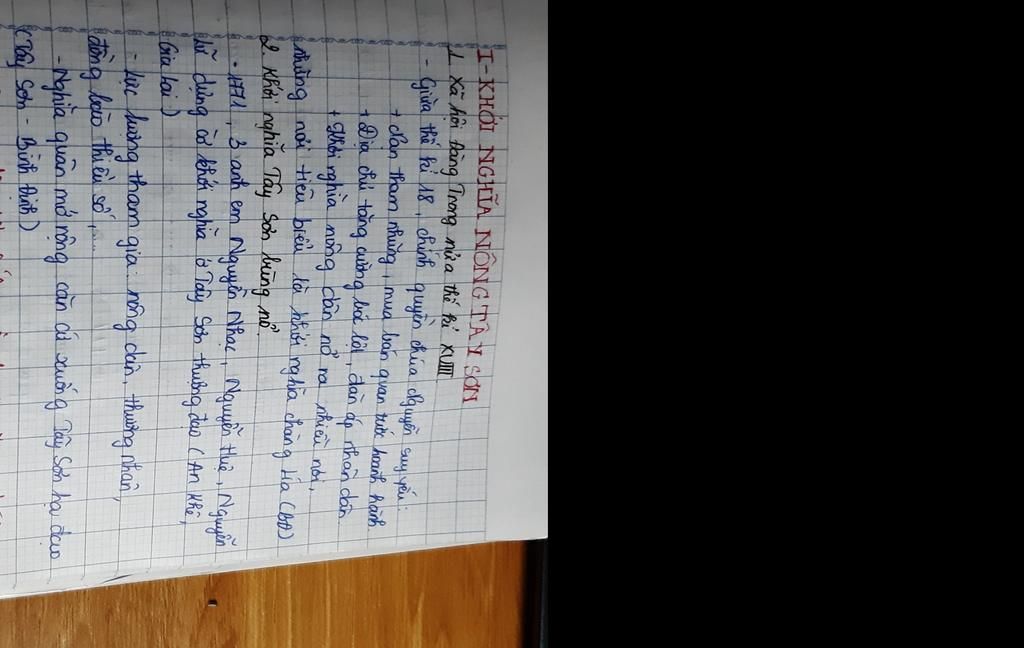 I-KHỞI NGHĨA NÔNG TÂY SƠN
1. Xã hội Đàng Trong nửa thế kỉ XVIII
- Giữa thế kỉ 18, chính quyền chúa Nguyễn suy yếu:
+ Nạn tham nhũng, mua bán quan tước hoành hành
+ Địa chủ tăng cường bóc lột, đàn áp nhân dân
+ Khởi nghĩa nông dân nổ ra nhiều nơi,
những nơi tiêu biểu là khởi nghĩa chàng Lía (BĐ)
2. Khởi nghĩa Tây Sơn bùng nổ
- 1771, 3 anh em Nguyễn Nhạc, Nguyễn Huệ, Nguyễn
Lữ dựng cờ khởi nghĩa ở Tây Sơn thượng đạo (An Khê,
Gia Lai)
- Lực lượng tham gia: nông dân, thương nhân,
đồng bào thiểu số,...
- Nghĩa quân mở rộng căn cứ xuống Tây Sơn hạ đạo
(Tây Sơn - Bình Định)